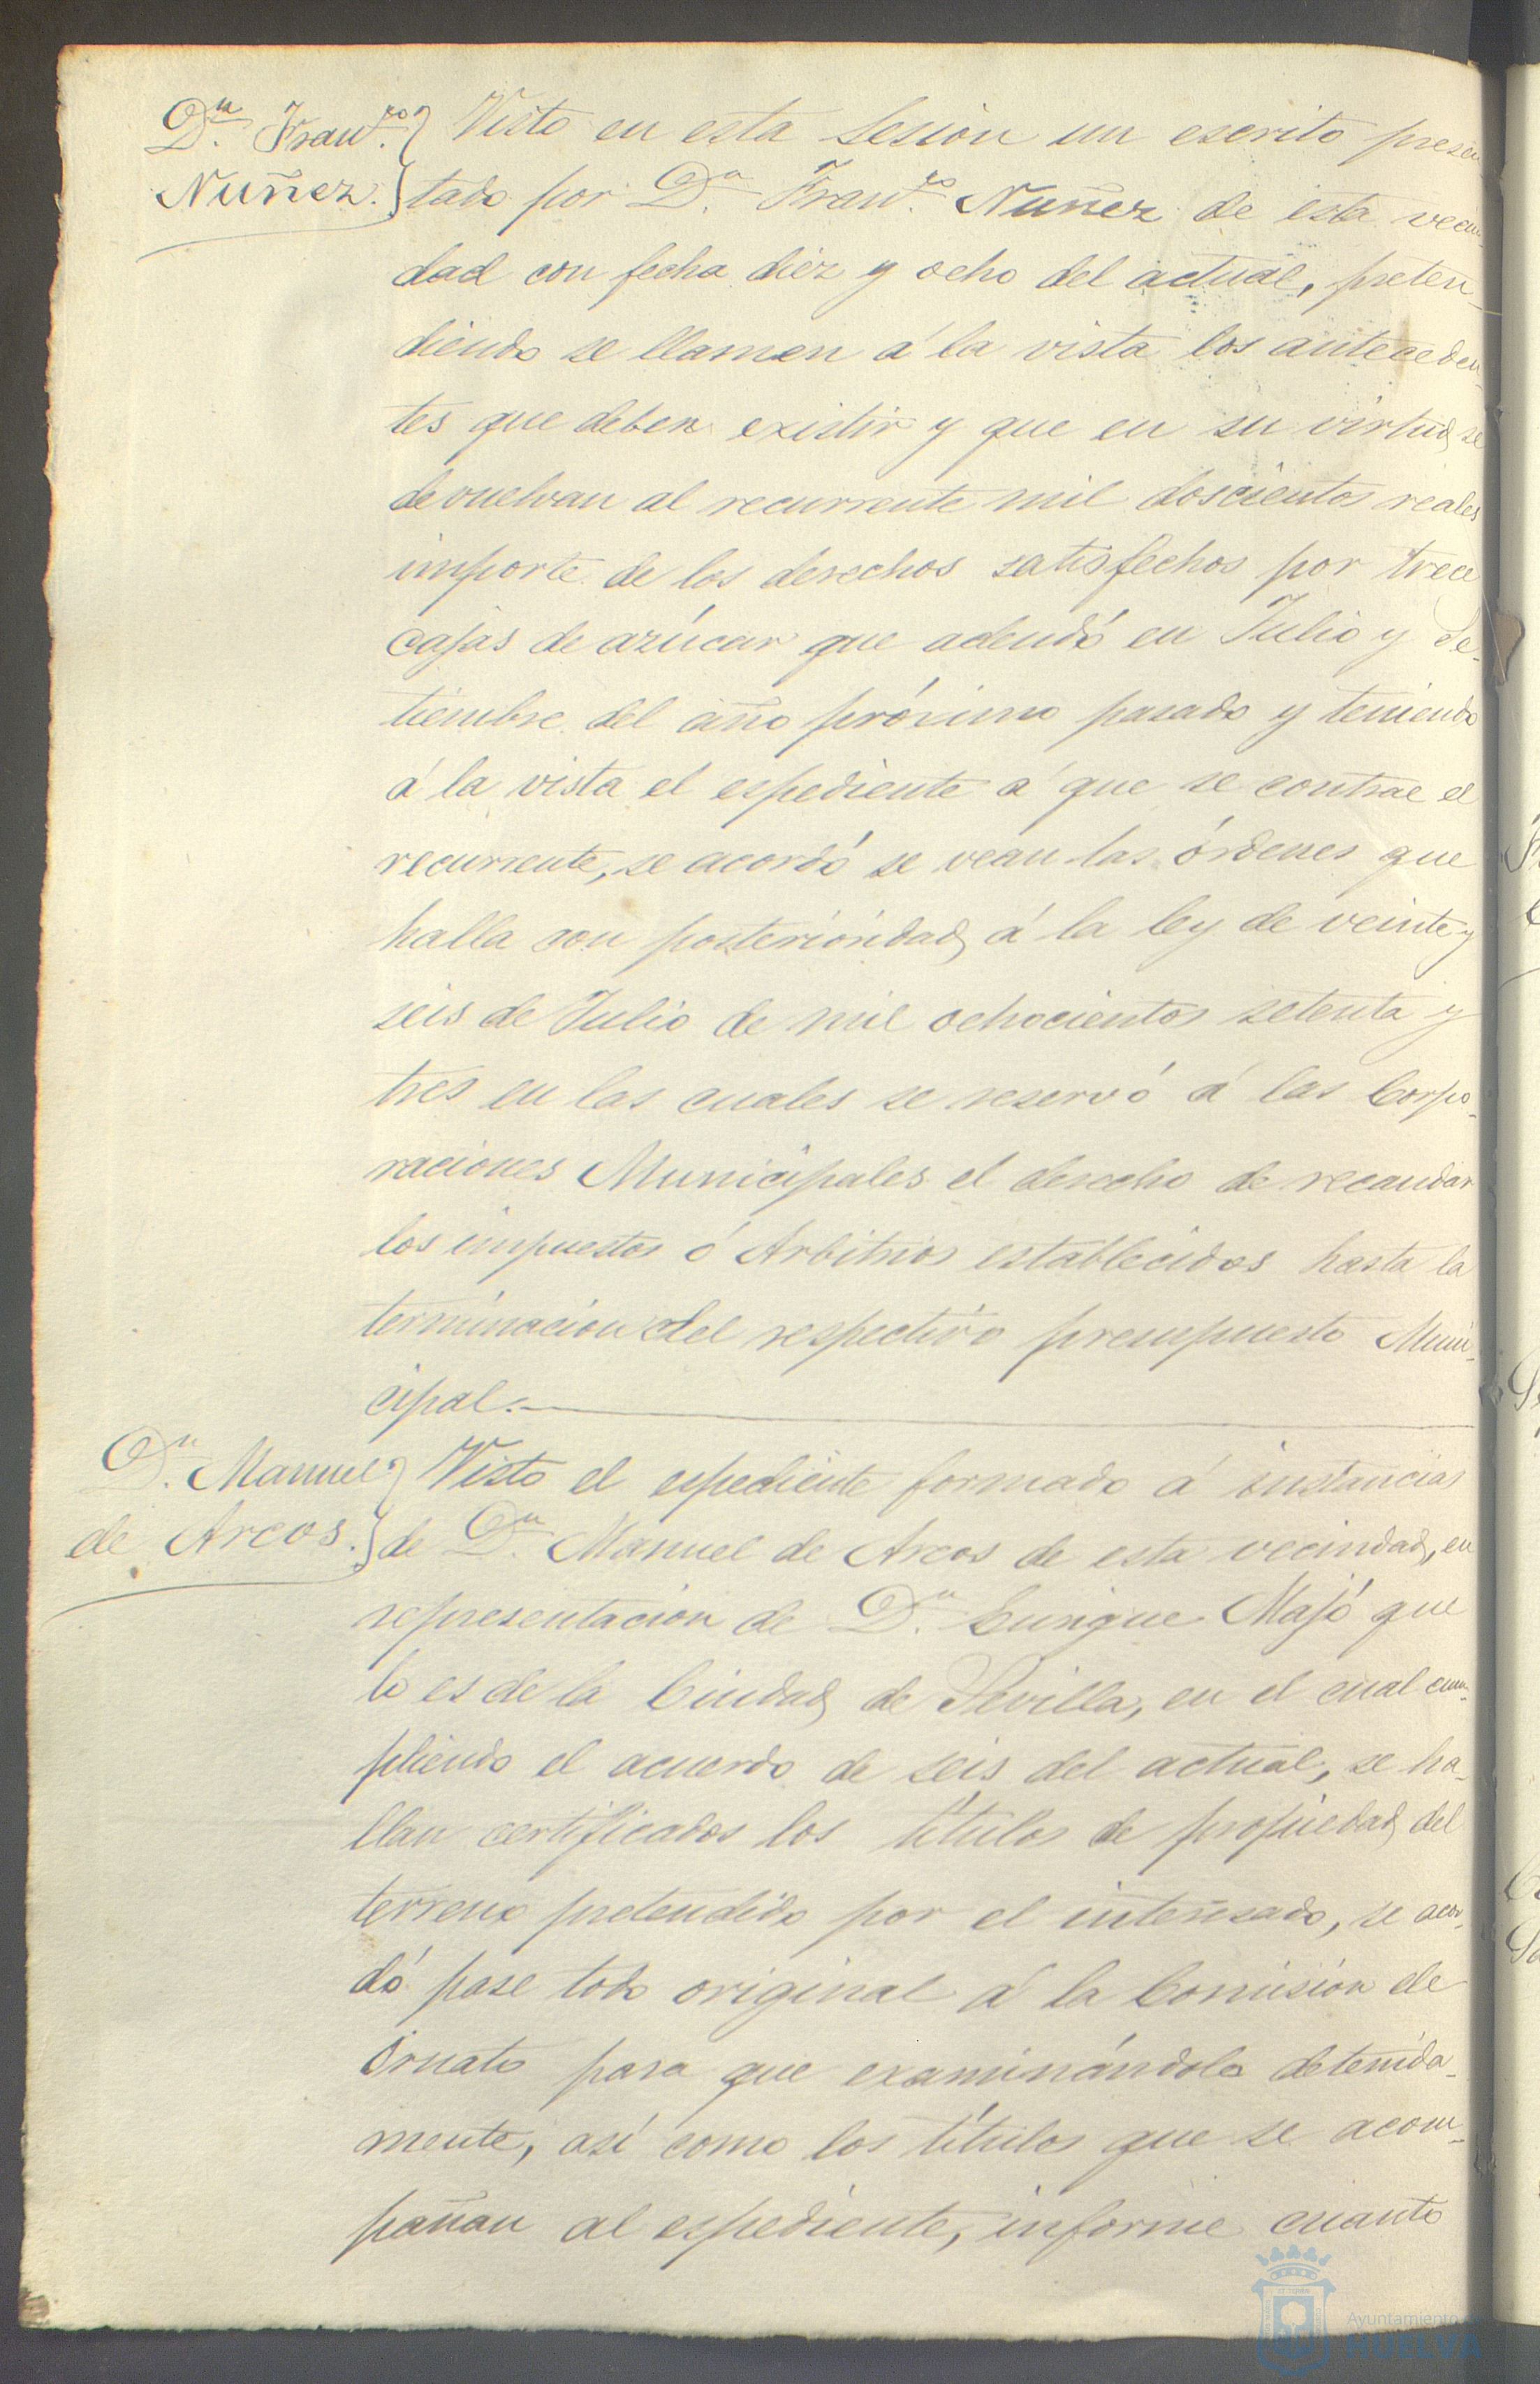 Dn. Franco.
Nuñez.
Visto en esta Sesion un escrito presen
tado por Dn. Franco. Nuñez de esta vecin-
dad con fecha diez y ocho del actual, preten-
diendo se llamen á la vista los anteceden-
tes que deben existir y que en su virtud se
devuelvan al recurrente mil doscientos reales
importe de los derechos satisfechos por trece
cajas de azúcar que adeudó en Julio y Se-
tiembre del año próximo pasado y teniendo
á la vista el espediente á que se contrae el
recurrente, se acordó se vean las órdenes que
halla con posterioridad á la ley de veinte y
seis de Julio de mil ochocientos setenta y
tres en las cuales se reservó á las Corpo-
raciones Municipales el derecho de recaudar
los impuestos ó Arbitrios establecidos hasta la
terminacion del respectivo presupuesto Muni-
cipal.
Dn. Manuel
de Arcos.
Visto el espediente formado á instancias
de Dn. Manuel de Arcos de esta vecindad, en
representacion de Dn. Enrique Majó que
lo es de la Ciudad de Sevilla, en el cual cum-
pliendo el acuerdo de seis del actual, se ha-
llan certificados los títulos de propiedad del
terreno pretendido por el interesado, se acor-
dó pase todo original á la Comision de
Ornato para que examinándolo detenida-
mente, así como los títulos que se acom-
pañan al espediente, informe cuanto
Ayuntamiento
HUELVA